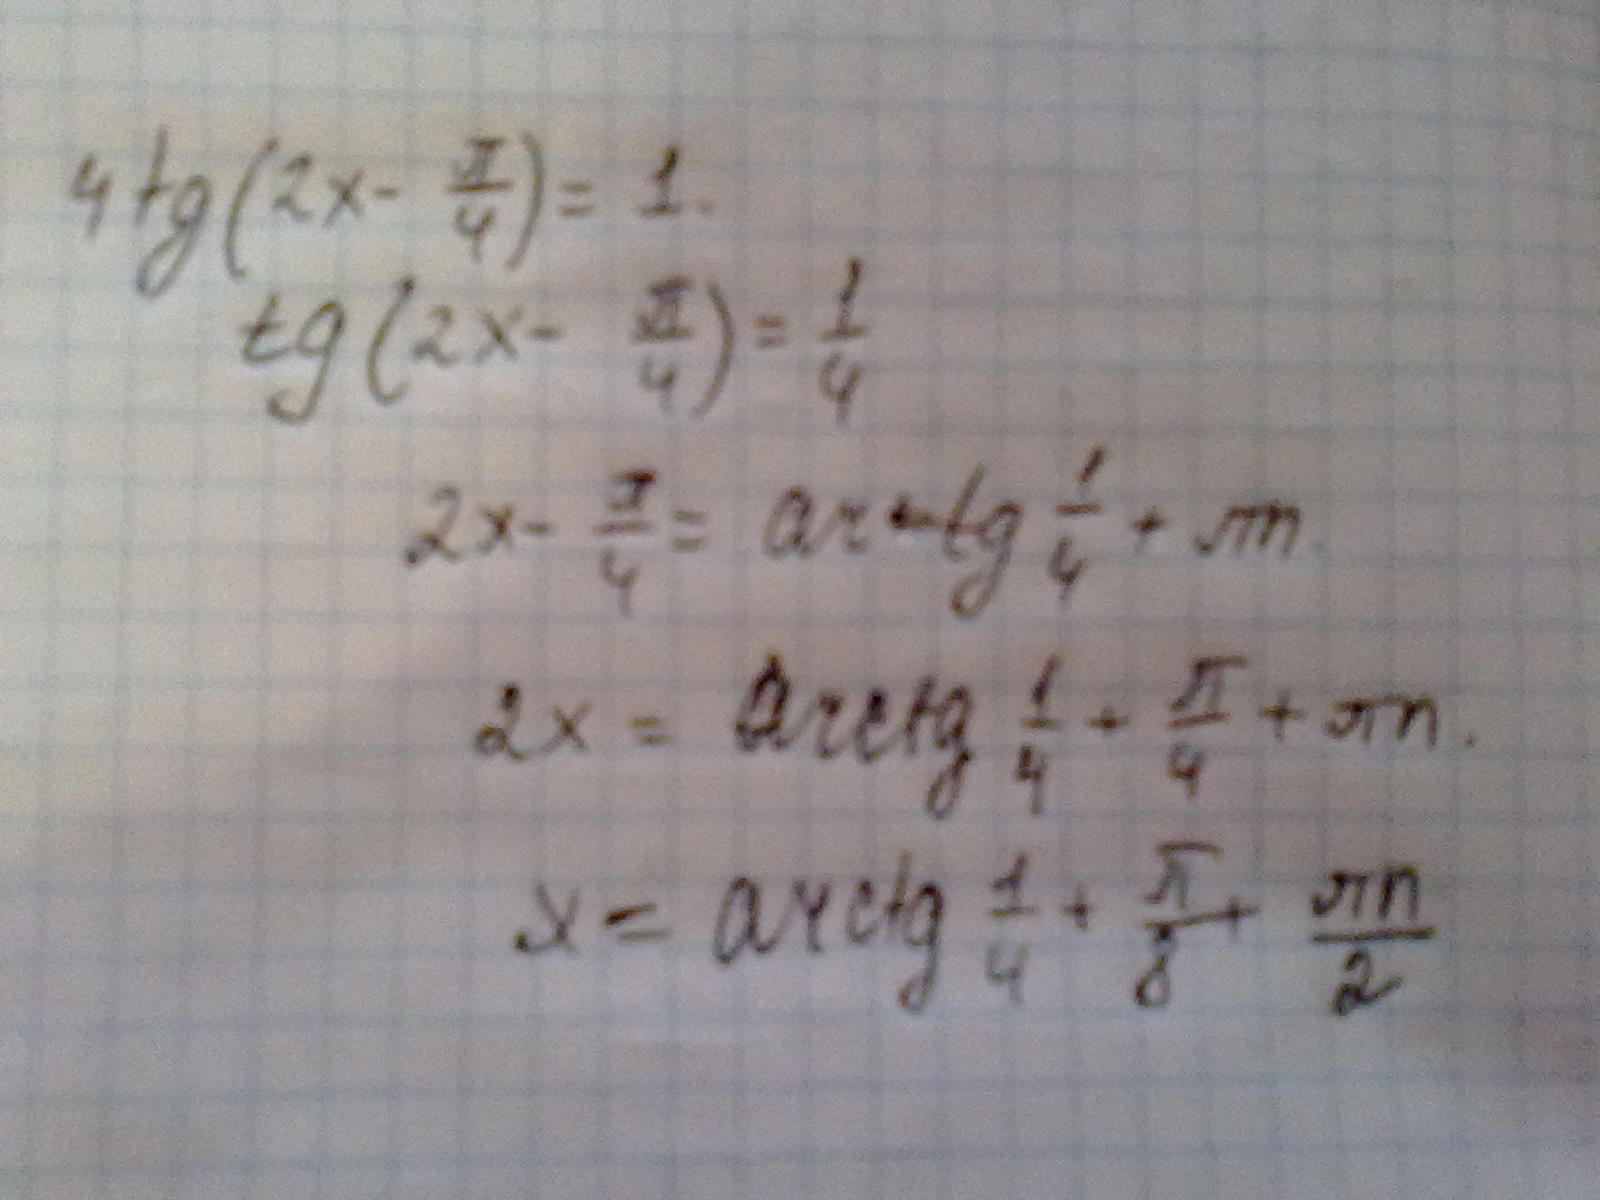 4 tg(2x - π/4) = 1.
tg(2x - π/4) = 1/4
2x - π/4 = arctg 1/4 + πn.
2x = arctg 1/4 + π/4 + πn.
x = arctg 1/4 + π/8 + πn/2